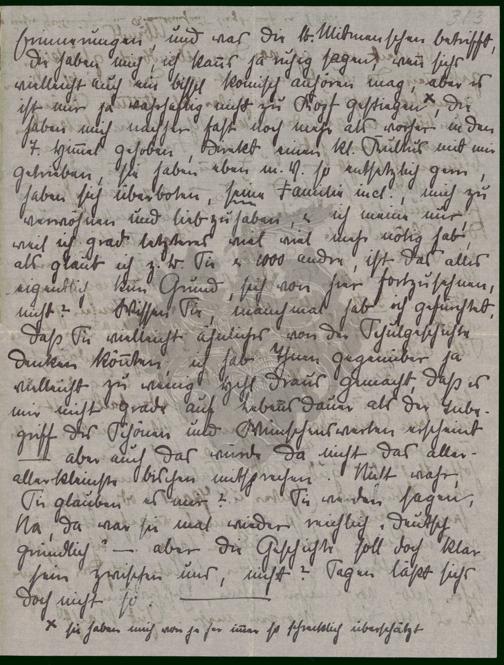 313
Erinnerungen, und was die lb. Mitmenschen betrifft,
die haben mich, ich kanns ja ruhig sagen, wenn sichs
vielleicht auch ein bissl komisch anhören mag, aber es
ist mir ja wahrhaftig nicht zu Kopf gestiegen ×, die
haben mich nachher fast noch mehr als vorher in den
7. Himmel gehoben, direkt einen kl. Kultus mit mir
getrieben, sie haben eben m. V. so entsetzlich gern,
haben sich überboten, seine Familie incl., mich zu
verwöhnen und liebzuhaben, u ich meine nur,
weil ich grad letzteres viel viel mehr nötig hab
als glaub ich z. B. Sie u 1000 andre, ist das alles
eigentlich kein Grund, sich von hier fortzusehnen,
nicht? Wissen Sie, manchmal hab ich gefürchtet,
daß Sie vielleicht ähnliches von der Schulgeschichte
denken könnten, ich hab Ihnen gegenüber ja
vielleicht zu wenig Hehl draus gemacht, daß es
mir nicht grade auf Lebensdauer als der Inbe-
griff des Schönen und Wünschenswerten erscheint
— aber auch das würde da nicht das aller-
allerkleinste bischen mitsprechen. Nicht wahr,
Sie glauben es mir? Sie werden sagen,
Na, da war sie mal wieder reichlich „deutsch
gründlich" — aber die Geschichte soll doch klar
sein zwischen uns, nicht? Sagen läßt sichs
doch nicht so.
× sie haben mich von je her immer so schrecklich überschätzt